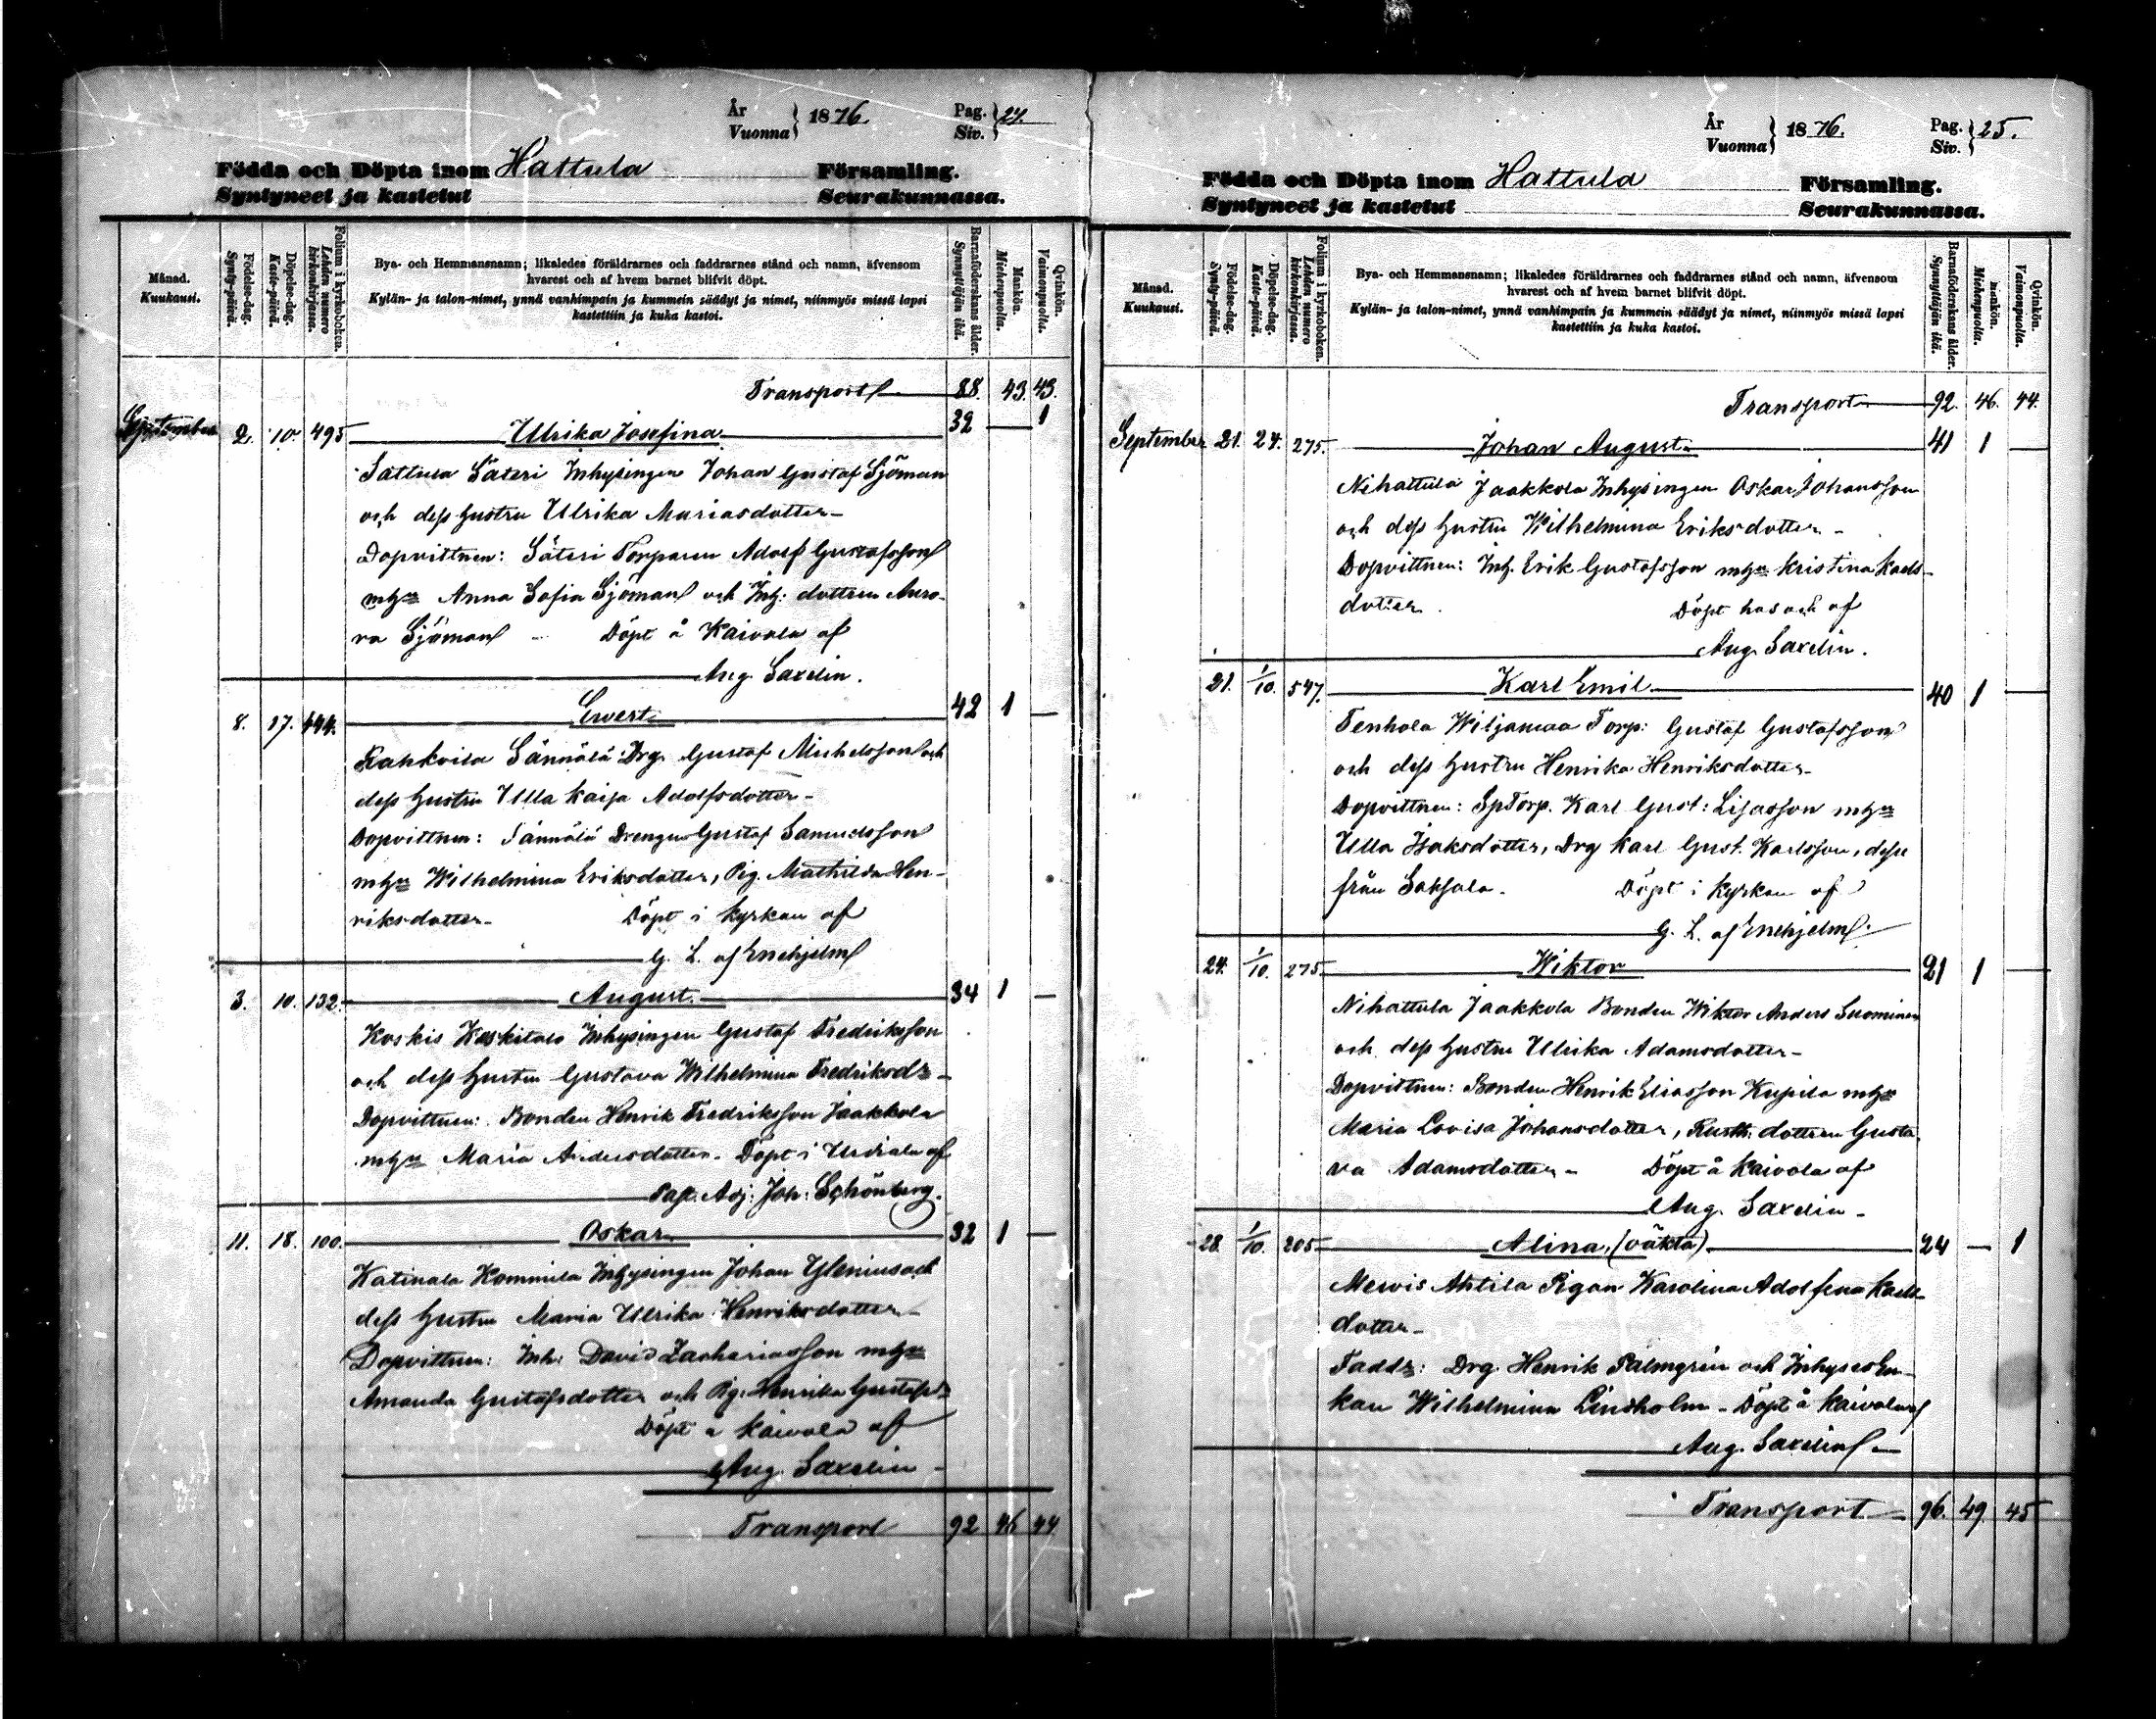 År
Vuonna } 1876.
Pag.
Siv. } 24.
Födda och Döpta inom Hattula Församling.
Syntyneet ja kastetut Seurakunnassa.
Månad.
Kuukausi.
Födelse-dag.
Synty-päivä.
Döpelse-dag.
Kaste-päivä.
Folium i kyrkoboken.
Lehden numero
kirkonkirjassa.
Bya- och Hemmansnamn; likaledes föräldrarnes och faddrarnes stånd och namn, äfvensom
hvarest och af hvem barnet blifvit döpt.
Kylän- ja talon-nimet, ynnä vanhimpain ja kummein säädyt ja nimet, niinmyös missä lapsi
kastettiin ja kuka kastoi.
Barnaföderskans ålder.
Synnyttäjän ikä.
Mankön.
Miehenpuolta.
Qvinkön.
Vaimonpuolta.
Transport 88. 43. 43.
September 2. 10. 495 Ulrika Josefina 32 — 1
Sattula Säteri Inhysingen Johan Gustaf Sjöman
och dess hustru Ulrika Mariasdotter
Dopvittnen: Säteri Torparen Adolf Gustafsson
m hu Anna Sofia Sjöman och Inh: dottren Auro-
ra Sjöman Döpt å Kaivola af
Aug. Saxelin.
8. 17. 444. Ewert 42 1 —
Rahkoila Sännälä Drg. Gustaf Michelsson och
dess hustru Ulla Kaisa Adolfsdotter
Dopvittnen: Sännälä Drengen Gustaf Samuelsson
m hu Wilhelmina Eriksdotter, Pig. Mathilda Hen-
riksdotter Döpt i kyrkan af
G. L. af Enehjelm
3. 10. 132. August. 34 1 —
Koskis Koskitalo Inhysingen Gustaf Fredriksson
och dess hustru Gustava Wilhelmina Fredriksdr
Dopvittnen: Bonden Henrik Fredriksson Jaakkola
m hu Maria Andersdotter. Döpt i Urdiala af
Past. Adj: Joh: Schönberg.
11. 18. 100. Oskar 32 1 —
Katinala Kommila Inhysingen Johan Ylenius och
dess hustru Maria Ulrika Henriksdotter
Dopvittnen: Inh: David Zachariasson m hu
Amanda Gustafsdotter och Pig: Henrika Gustafsdr
Döpt å Kaivola af
Aug. Saxelin
Transport 92 46 44
År
Vuonna } 1876.
Pag.
Siv. } 25.
Födda och Döpta inom Hattula Församling.
Syntyneet ja kastetut Seurakunnassa.
Månad.
Kuukausi.
Födelse-dag.
Synty-päivä.
Döpelse-dag.
Kaste-päivä.
Folium i kyrkoboken.
Lehden numero
kirkonkirjassa.
Bya- och Hemmansnamn; likaledes föräldrarnes och faddrarnes stånd och namn, äfvensom
hvarest och af hvem barnet blifvit döpt.
Kylän- ja talon-nimet, ynnä vanhimpain ja kummein säädyt ja nimet, niinmyös missä lapsi
kastettiin ja kuka kastoi.
Barnaföderskans ålder.
Synnyttäjän ikä.
Mankön.
Miehenpuolta.
Qvinkön.
Vaimonpuolta.
Transport 92. 46. 44.
September 21. 24. 275. Johan August 41 1 —
Nihattula Jaakkola Inhysingen Oskar Johansson
och dess hustru Wilhelmina Eriksdotter
Dopvittnen: Inh. Erik Gustafsson m hu Kristina Karls-
dotter. Döpt hos och af
Aug. Saxelin.
21. 1/10. 547. Karl Emil 40 1 —
Tenhola Wiljamaa Torp: Gustaf Gustafsson
och dess hustru Henrika Henriksdotter
Dopvittnen: Sp Torp. Karl Gust: Lisasson m hu
Ulla Isaksdotter, Drg Karl Gust. Karlsson, desse
från Saksala. Döpt i kyrkan af
G. L. af Enehjelm.
24. 1/10. 275. Wiktor 21 1 —
Nihattula Jaakkola Bonden Wiktor Anders Suominen
och dess hustru Ulrika Adamsdotter
Dopvittnen: Bonden Henrik Eliasson Kupila m hu
Maria Lovisa Johansdotter, Rusth. dottren Gusta-
va Adamsdotter Döpt å Kaivola af
Aug. Saxelin
28. 1/10. 205 Alina, (oäkta) 24 — 1
Merwis Ahtila Pigan Karolina Adolfina Karls-
dotter
Faddr: Drg. Henrik Palmgrén och Inhyses En-
kan Wilhelmina Lindholm. Döpt å Kaivola af
Aug. Saxelin
Transport 96. 49. 45